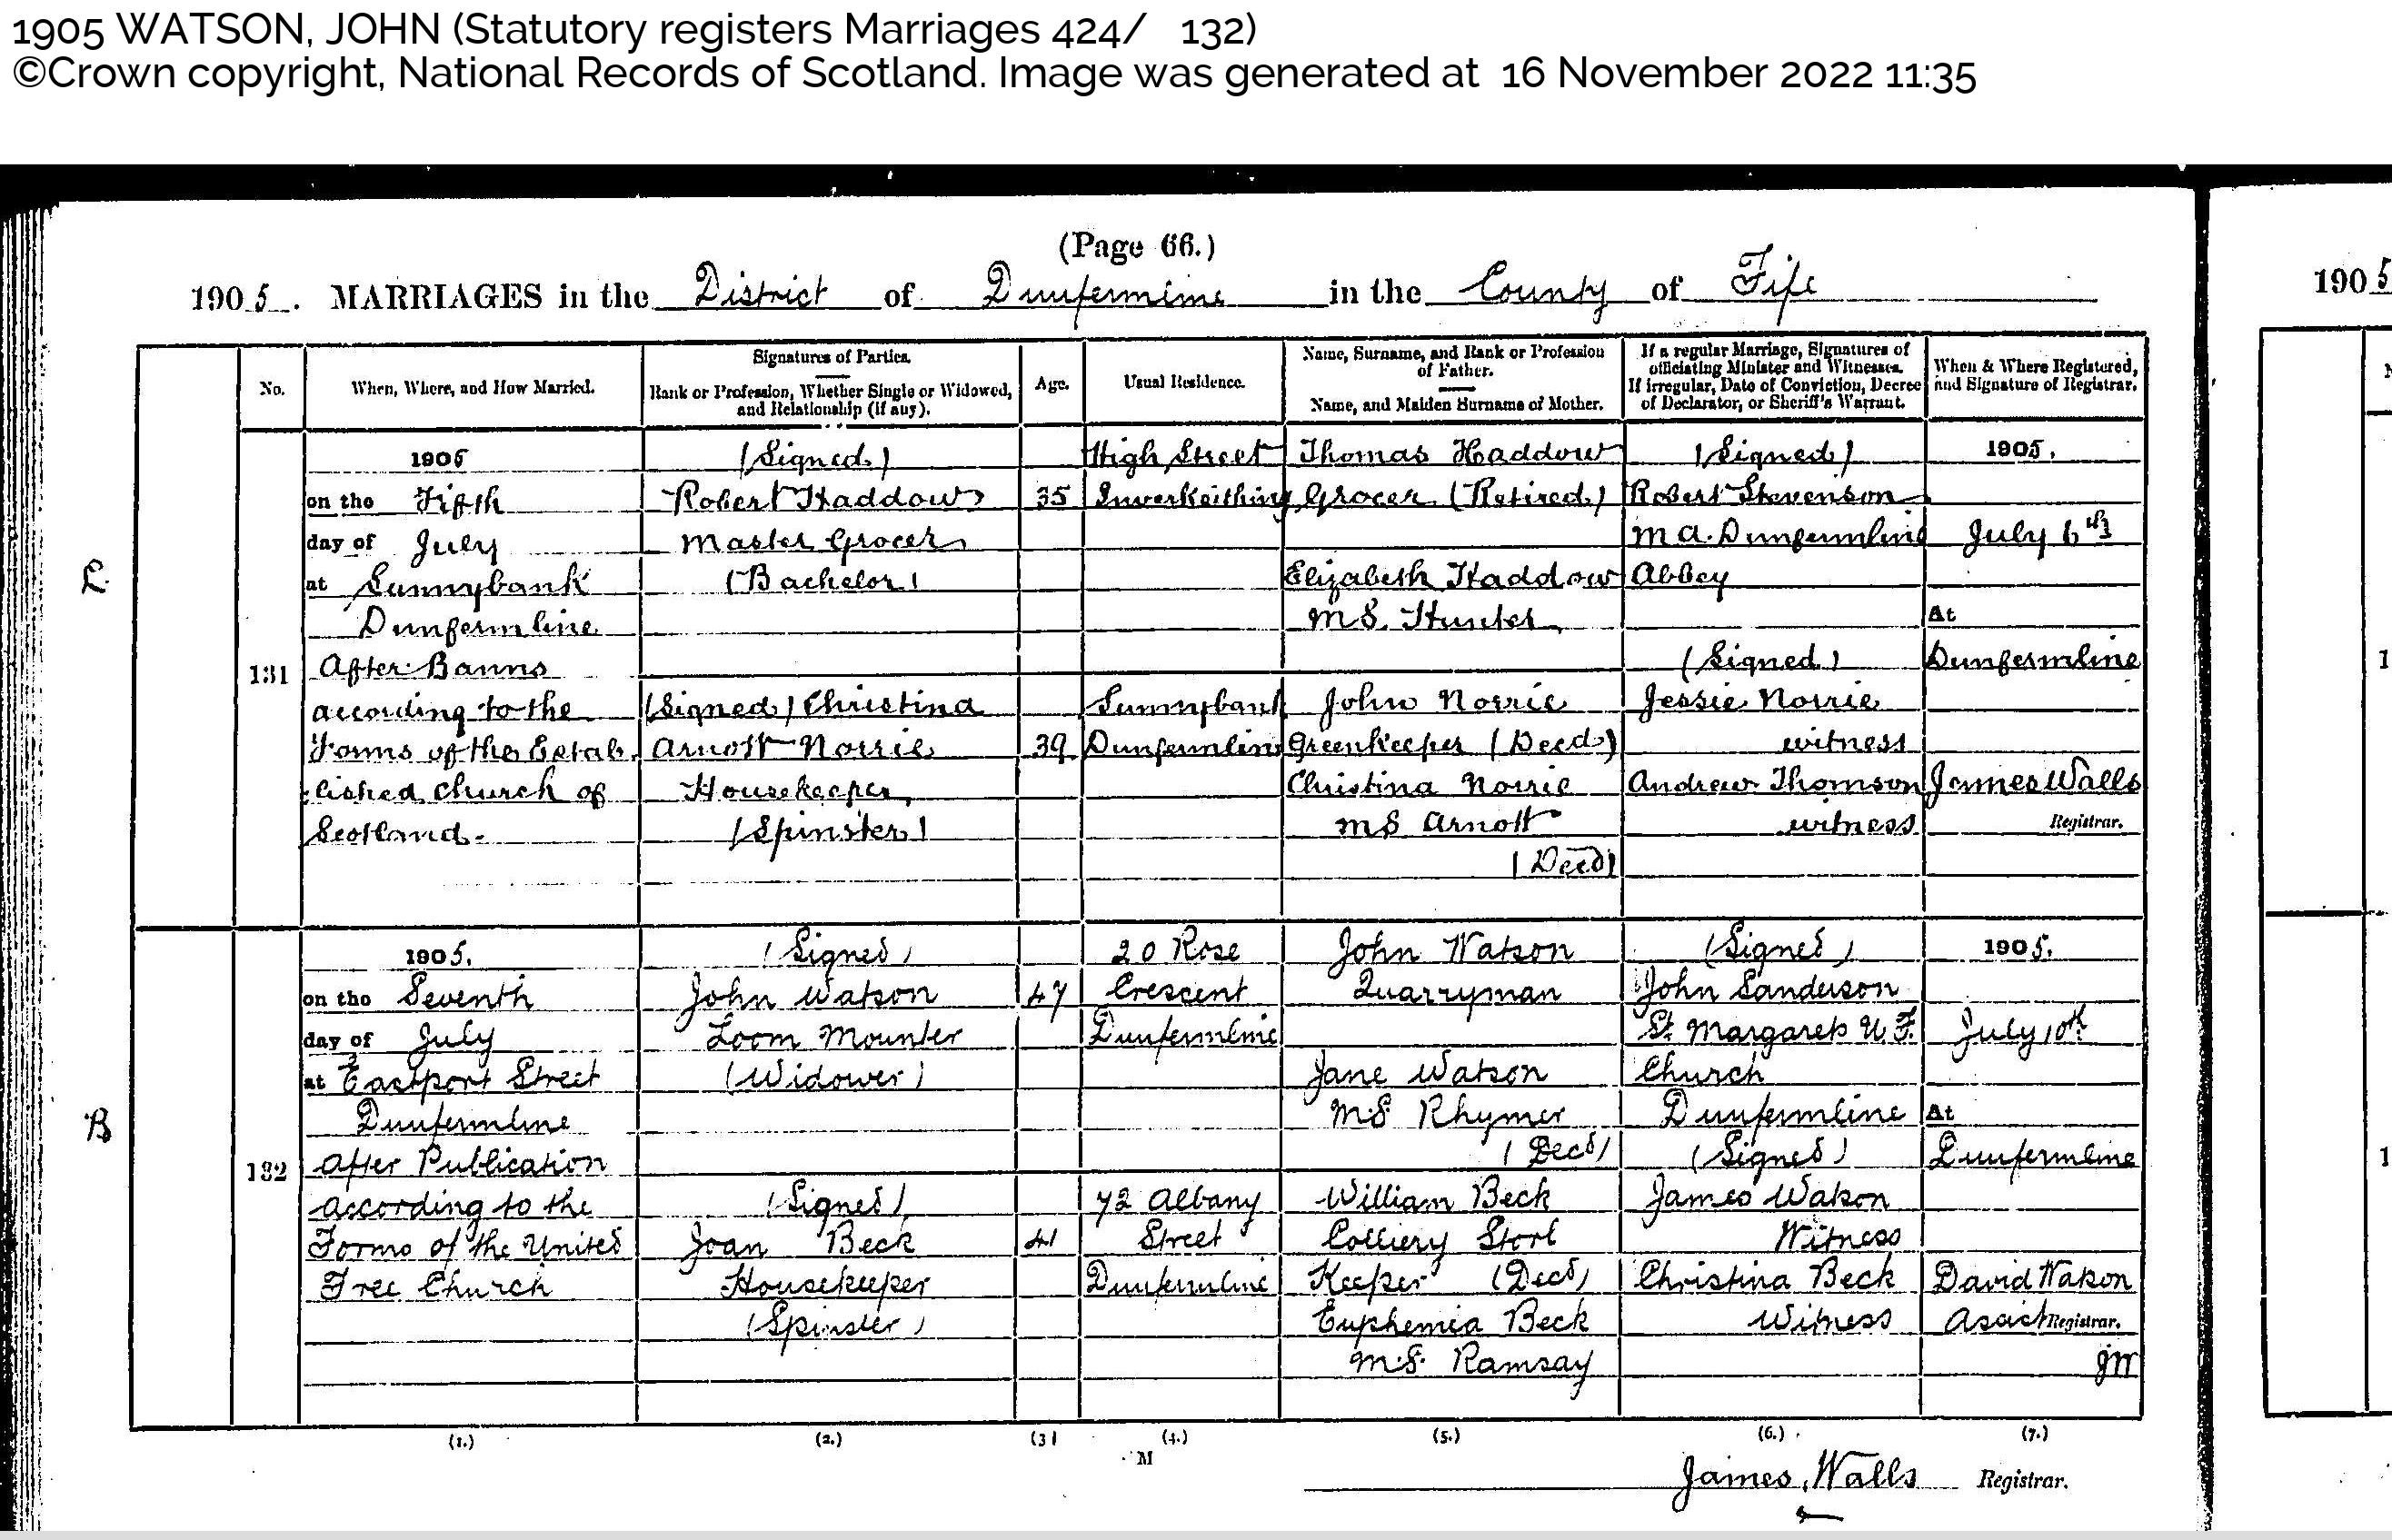 1905 WATSON, JOHN (Statutory registers Marriages 424/ 132)
©Crown copyright, National Records of Scotland. Image was generated at 16 November 2022 11:35
(Page 66.)
1905. MARRIAGES in the District of Dunfermline in the County of Fife
1905
No.
When, Where, and How Married.
Signatures of Parties.
Rank or Profession, Whether Single or Widowed,
and Relationship (if any).
Age.
Usual Residence.
Name, Surname, and Rank or Profession
of Father.
Name, and Maiden Surname of Mother.
If a regular Marriage, Signatures of
officiating Minister and Witnesses.
If irregular, Date of Conviction, Decree
of Declarator, or Sheriff's Warrant.
When & Where Registered,
and Signature of Registrar.
131
1905
on the Fifth
day of July
at Sunnybank
Dunfermline
After Banns
according to the
Forms of the Estab
lished Church of
Scotland.
(Signed)
Robert Haddow
Master Grocer
(Bachelor)
(Signed) Christina
Arnott Norrie
Housekeeper
(Spinster)
35
39
High Street
Inverkeithing
Sunnybank
Dunfermline
Thomas Haddow
Grocer (Retired)
Elizabeth Haddow
M.S. Hunter
John Norrie
Greenkeeper (Decd)
Christina Norrie
MS Arnott
(Decd)
(Signed)
Robert Stevenson
M.A. Dunfermline
Abbey
(Signed)
Jessie Norrie
witness
Andrew Thomson
witness
1905.
July 6th
At
Dunfermline
James Walls
Registrar.
B
132
1905.
on the Seventh
day of July
at Eastport Street
Dunfermline
After Publication
according to the
Forms of the United
Free Church
(Signed)
John Watson
Loom Mounter
(Widower)
(Signed)
Joan Beck
Housekeeper
(Spinster)
47
41
20 Rose
Crescent
Dunfermline
72 Albany
Street
Dunfermline
John Watson
Quarryman
Jane Watson
M.S. Rhymer
(Decd)
William Beck
Colliery Store
Keeper (Decd)
Euphemia Beck
M.S. Ramsay
(Signed)
John Sanderson
St. Margarets U.F.
Church
Dunfermline
(Signed)
James Watson
Witness
Christina Beck
Witness
1905.
July 10th
At
Dunfermline
David Watson
Assist Registrar.
JW
(1.) (2.) (3) (4.) (5.) (6.) (7.)
M
James Walls Registrar.